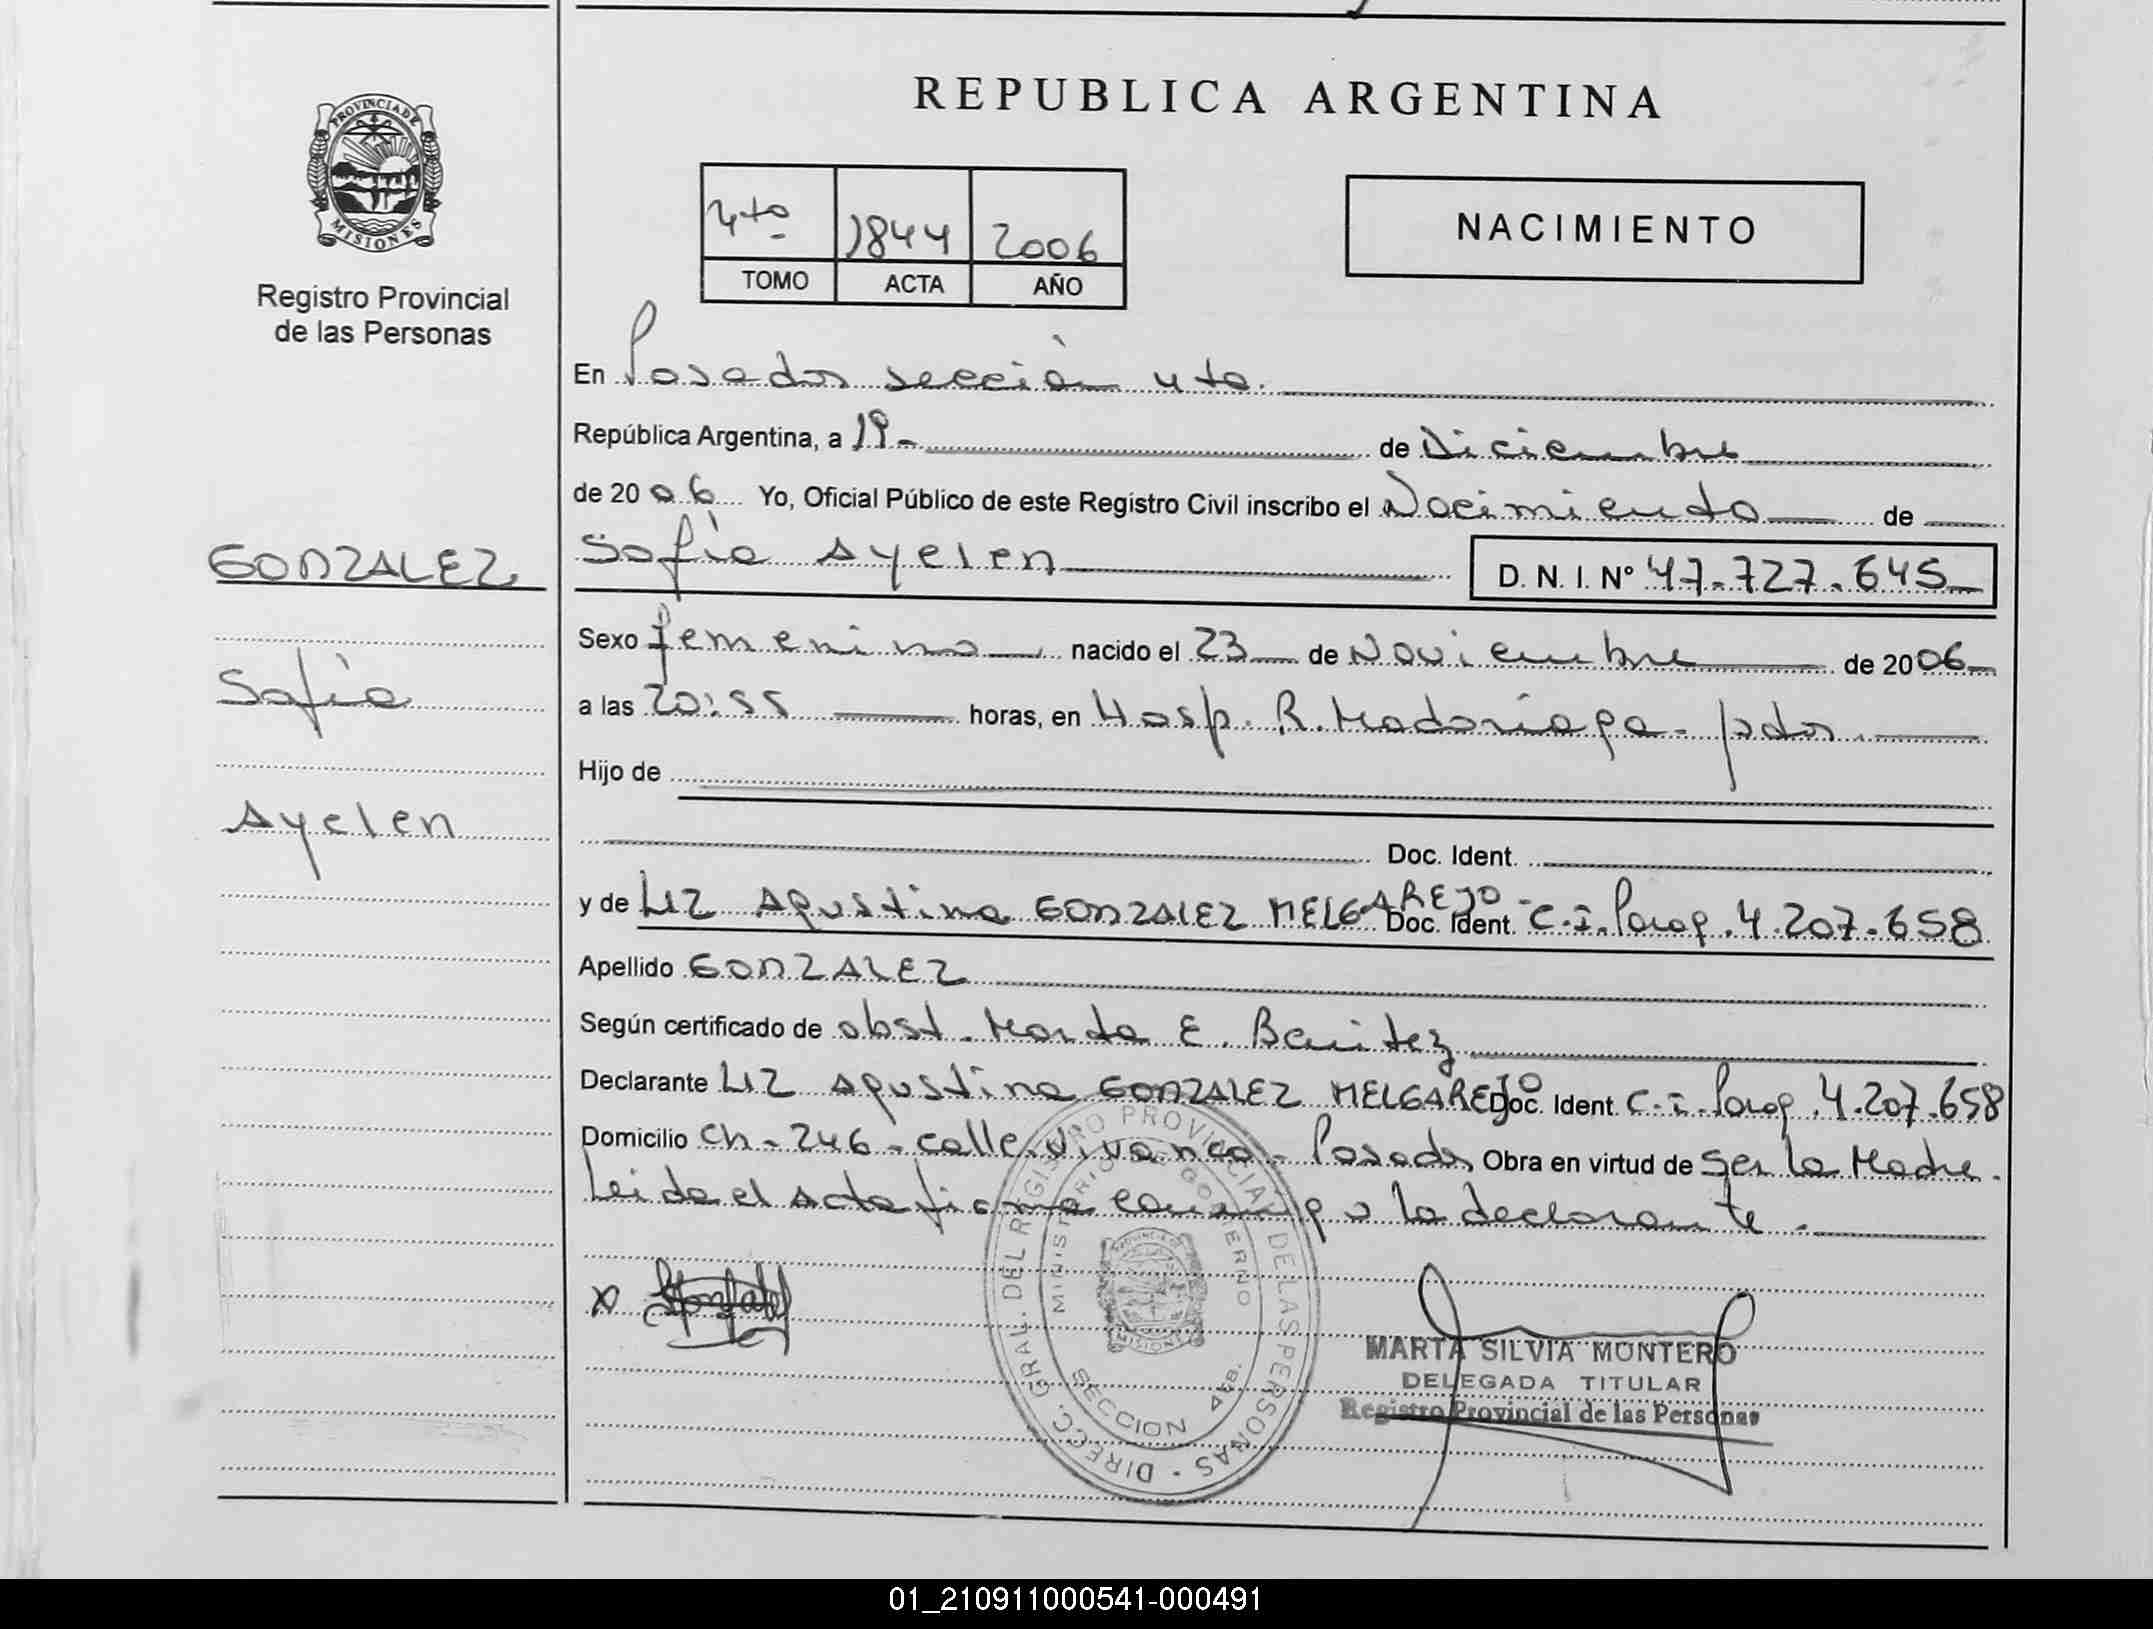 REPUBLICA ARGENTINA
PROVINCIA DE MISIONES
Registro Provincial
de las Personas
4to 1844 2006
TOMO ACTA AÑO
NACIMIENTO
En Posadas sección 4ta.
República Argentina, a 19 - de Diciembre
de 2006 Yo, Oficial Público de este Registro Civil inscribo el Nacimiento de
GONZALEZ
Sofía
Ayelen
Sofía Ayelen D. N. I. Nº 47.727.645
Sexo femenino nacido el 23 de Noviembre de 2006
a las 20:55 horas, en Hosp. R. Madariaga - pdas.
Hijo de
Doc. Ident.
y de LIZ Agustina GONZALEZ MELGAREJO - Doc. Ident. C.I. Parag. 4.207.658
Apellido GONZALEZ
Según certificado de obst. Marta E. Benitez
Declarante LIZ Agustina GONZALEZ MELGAREJO Doc. Ident. C.I. Parag. 4.207.658
Domicilio Ch - 246 - calle Vivanco - Posadas Obra en virtud de ser la Madre.
Leida el Acta firma conmigo la declarante.
DIRECC. GRAL. DEL REGISTRO PROVINCIAL DE LAS PERSONAS
MINISTERIO DE GOBIERNO
MISIONES
SECCION 4ta.
MARTA SILVIA MONTERO
DELEGADA TITULAR
Registro Provincial de las Personas
01_210911000541-000491